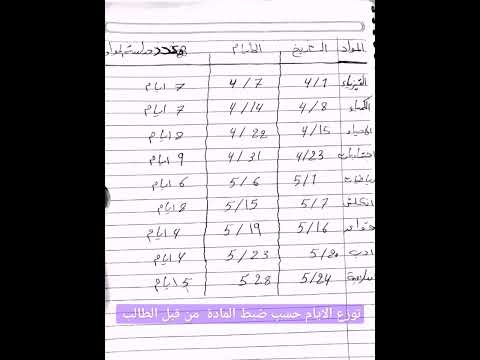 المواد التاريخ عدد دراسة المواد
الفيزياء 4/1 4/7 7 ايام
الكيمياء 4/8 4/14 7 ايام
الاحياء 4/15 4/22 8 ايام
اجتماعيات 4/23 4/31 9 ايام
رياضيات 5/1 5/6 6 ايام
5/7 5/15 8 ايام
قواعد 5/16 5/19 4 ايام
ادب 5/20 5/23 4 ايام
5/24 5 28 5 ايام
توزع الايام حسب ضبط المادة من قبل الطالب